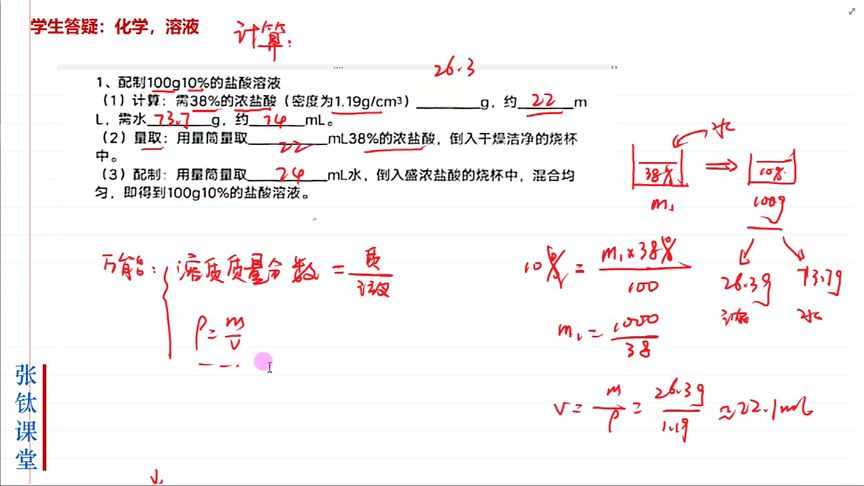 学生答疑：化学，溶液
计算：
26.3
1、配制100g10%的盐酸溶液
（1）计算：需38%的浓盐酸（密度为1.19g/cm³）________g，约 22 m
L，需水 73.7 g，约 74 mL。
（2）量取：用量筒量取 22 mL38%的浓盐酸，倒入干燥洁净的烧杯
中。
（3）配制：用量筒量取 24 mL水，倒入盛浓盐酸的烧杯中，混合均
匀，即得到100g10%的盐酸溶液。
水
38% ⇒ 10%
m₁ 100g
26.3g 73.7g
浓 水
万能：溶质质量分数 = 质/液
ρ = m/V
10% = m₁×38%/100
m₁ = 1000/38
V = m/ρ = 26.3g/1.19 ≈ 22.1mL
张
钛
课
堂